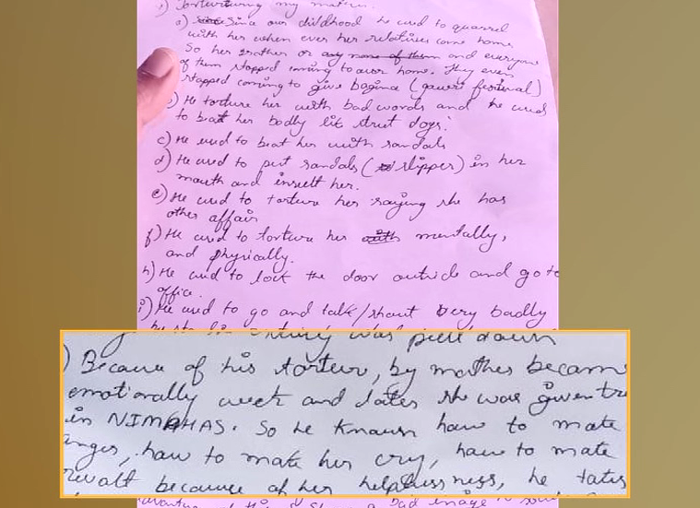 1) Torturing my mother.
a) Since our childhood he used to quarrel
with her when ever her relatives came home.
So her brother or any none of them and everyone
of them stopped coming to our home. They even
stopped coming to give bagina (gowri festival)
b) He torture her with bad words and he used
to beat her badly lik street dogs.
c) He used to beat her with sandals
d) He used to put sandals (slipper) in her
mouth and insult her.
e) He used to torture her saying she has
other affair
f) He used to torture her with mentally,
and physically.
h) He used to lock the door outside and go to
office.
i) He used to go and talk/shout very badly
was pull down
) Because of his torture, by mother becam
emotionally week and later she was given tre
in NIMHAS. So he known how to mate
anger, how to make her cry, how to mate
revolt because of her helplessness, he tates
bad image